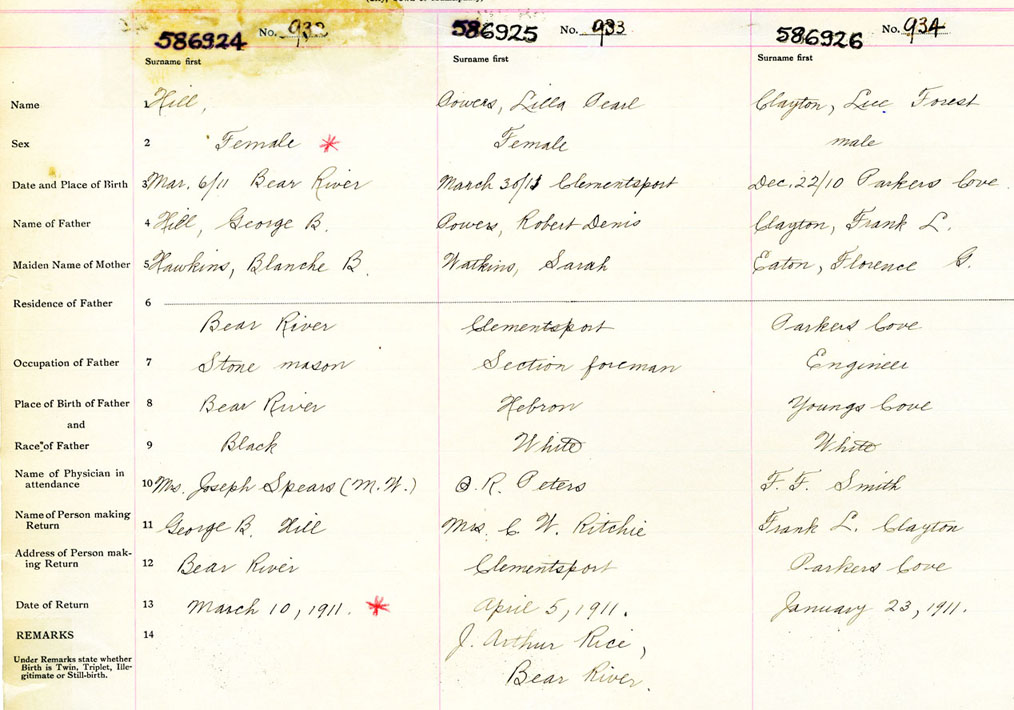 586924 No. 932 586925 No. 933 586926 No. 934
Surname first Surname first Surname first
Name 1 Hill, Powers, Lilla Pearl Clayton, Lee Forest
Sex 2 Female * Female male
Date and Place of Birth 3 Mar. 6/11 Bear River March 30/11 Clementsport Dec. 22/10 Parkers Cove
Name of Father 4 Hill, George B. Powers, Robert Denis Clayton, Frank L.
Maiden Name of Mother 5 Hawkins, Blanche B. Watkins, Sarah Eaton, Florence G.
Residence of Father 6
Bear River Clementsport Parkers Cove
Occupation of Father 7 Stone mason Section foreman Engineer
Place of Birth of Father 8 Bear River Hebron Youngs Cove
and
Race of Father 9 Black White White
Name of Physician in
attendance 10 Mrs. Joseph Spears (M.W.) R. Peters F. F. Smith
Name of Person making
Return 11 George B. Hill Mrs. C. W. Ritchie Frank L. Clayton
Address of Person mak-
ing Return 12 Bear River Clementsport Parkers Cove
Date of Return 13 March 10, 1911. * April 5, 1911. January 23, 1911.
REMARKS 14 J. Arthur Rice,
Under Remarks state whether
Birth is Twin, Triplet, Ille-
gitimate or Still-birth.
Bear River.